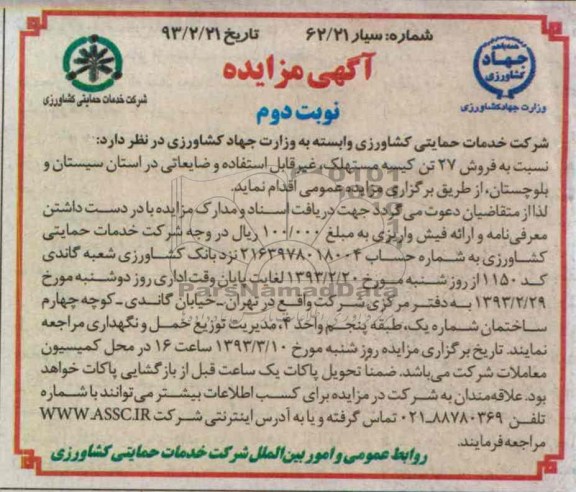 شماره: سیار ۶۲/۲۱
تاریخ ۹۳/۲/۲۱
همه با هم
جهاد
کشاورزی
وزارت جهاد کشاورزی
شرکت خدمات حمایتی کشاورزی
آگهی مزایده
نوبت دوم
شرکت خدمات حمایتی کشاورزی وابسته به وزارت جهاد کشاورزی در نظر دارد:
نسبت به فروش ۲۷ تن کیسه مستهلک، غیرقابل استفاده و ضایعاتی در استان سیستان و
بلوچستان، از طریق برگزاری مزایده عمومی اقدام نماید.
لذا از متقاضیان دعوت می‌گردد جهت دریافت اسناد و مدارک مزایده با در دست داشتن
معرفی‌نامه و ارائه فیش واریزی به مبلغ ۱۰۰/۰۰۰ ریال در وجه شرکت خدمات حمایتی
کشاورزی به شماره حساب ۲۱۶۳۹۷۸۰۱۸۰۰۴ نزد بانک کشاورزی شعبه گاندی
کد ۱۱۵۰ از روز شنبه مورخ ۱۳۹۳/۲/۲۰ لغایت پایان وقت اداری روز دوشنبه مورخ
۱۳۹۳/۲/۲۹ به دفتر مرکزی شرکت واقع در تهران ـ خیابان گاندی ـ کوچه چهارم
ساختمان شماره یک، طبقه پنجم واحد ۴، مدیریت توزیع حمل و نگهداری مراجعه
نمایند. تاریخ برگزاری مزایده روز شنبه مورخ ۱۳۹۳/۳/۱۰ ساعت ۱۶ در محل کمیسیون
معاملات شرکت می‌باشد. ضمنا تحویل پاکات یک ساعت قبل از بازگشایی پاکات خواهد
بود. علاقه‌مندان به شرکت در مزایده برای کسب اطلاعات بیشتر می‌توانند با شماره
تلفن ۸۸۷۸۰۳۶۹ـ۰۲۱ تماس گرفته و یا به آدرس اینترنتی شرکت WWW.ASSC.IR
مراجعه فرمایند.
روابط عمومی و امور بین‌الملل شرکت خدمات حمایتی کشاورزی
ParsNamadData